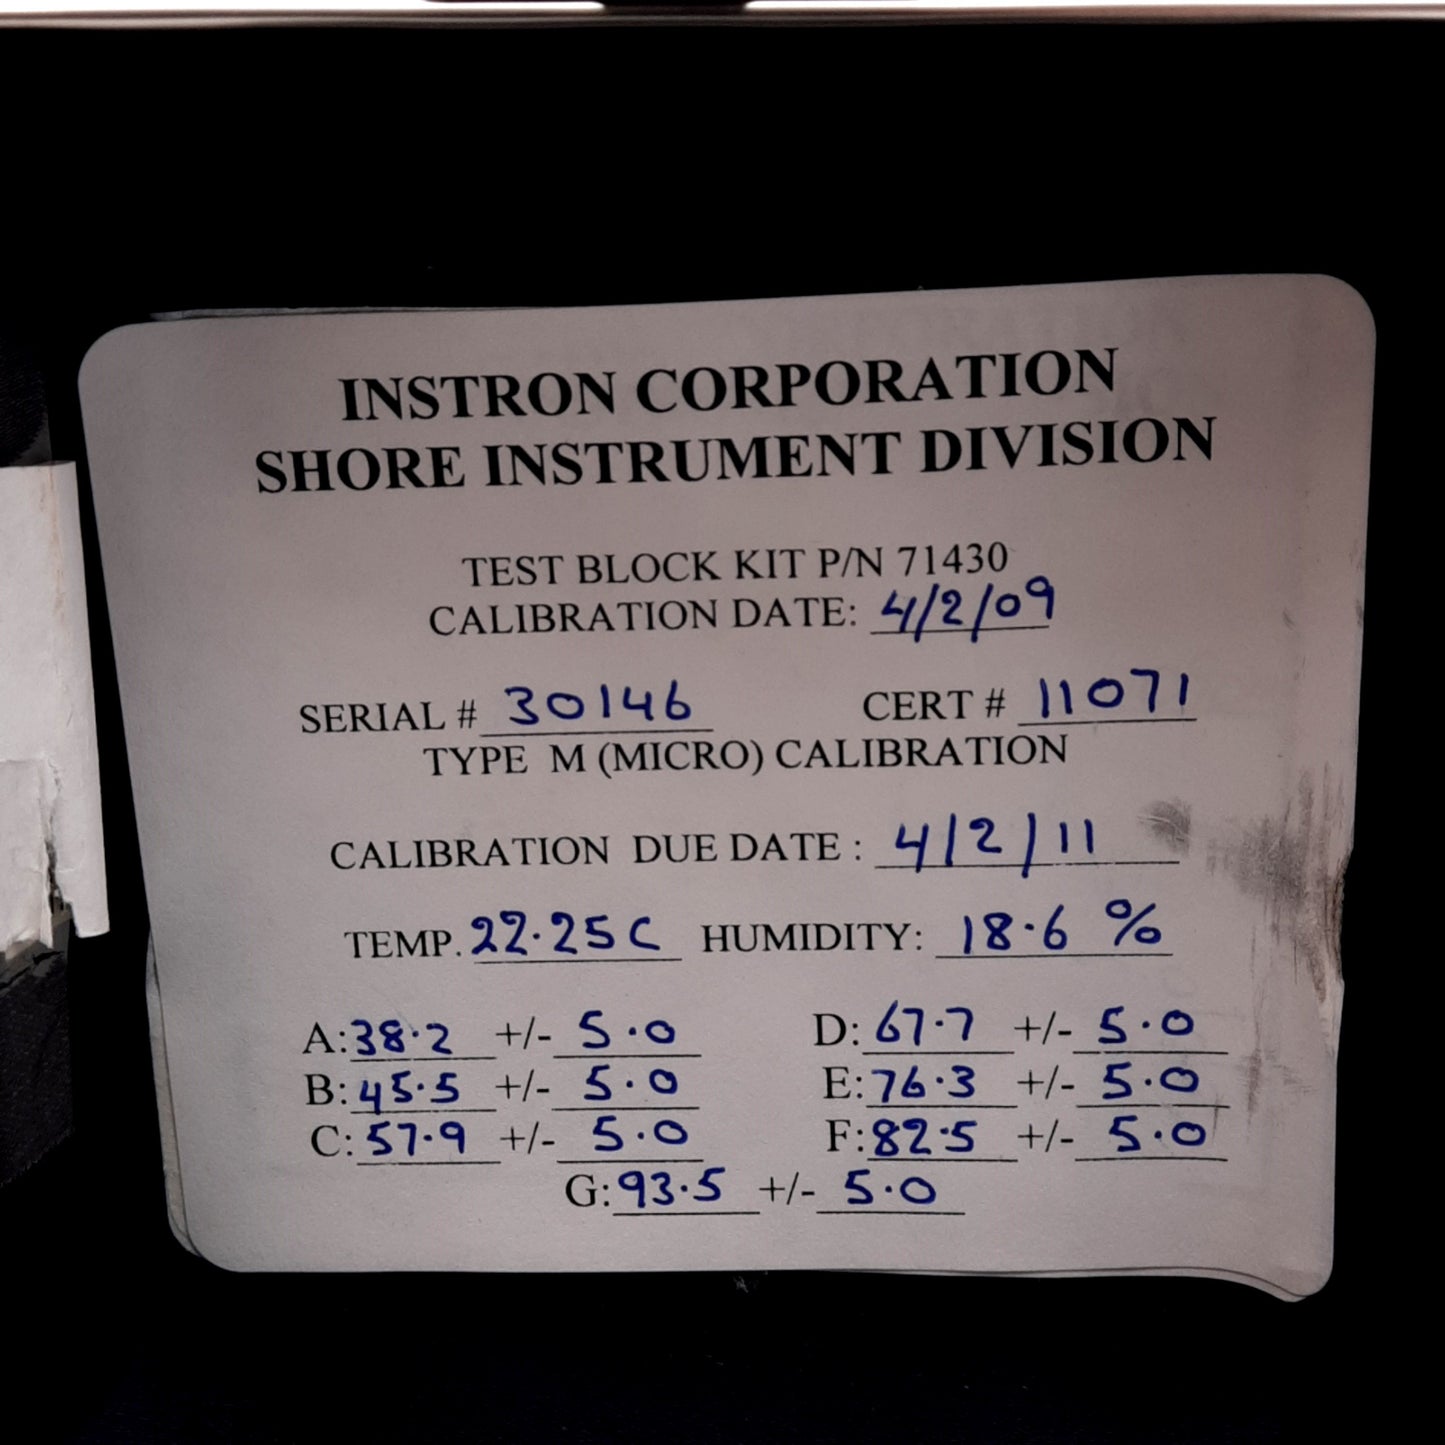 INSTRON CORPORATION
SHORE INSTRUMENT DIVISION
TEST BLOCK KIT P/N 71430
CALIBRATION DATE: 4/2/09
SERIAL # 30146 CERT # 11071
TYPE M (MICRO) CALIBRATION
CALIBRATION DUE DATE : 4/2/11
TEMP. 22.25C HUMIDITY: 18.6 %
A: 38.2 +/- 5.0 D: 67.7 +/- 5.0
B: 45.5 +/- 5.0 E: 76.3 +/- 5.0
C: 57.9 +/- 5.0 F: 82.5 +/- 5.0
G: 93.5 +/- 5.0